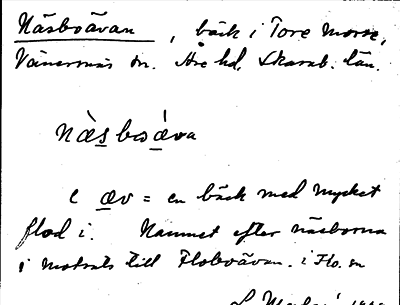 Näsboävan, bäck i Tore mosse,
Vänersnäs sn. Åse hd, Skarab. län.
næ̀s boǽva
e æv = en bäck med mycket
flod i. Namnet efter näsborna
i motsats till Floboävan. i Flo. sn